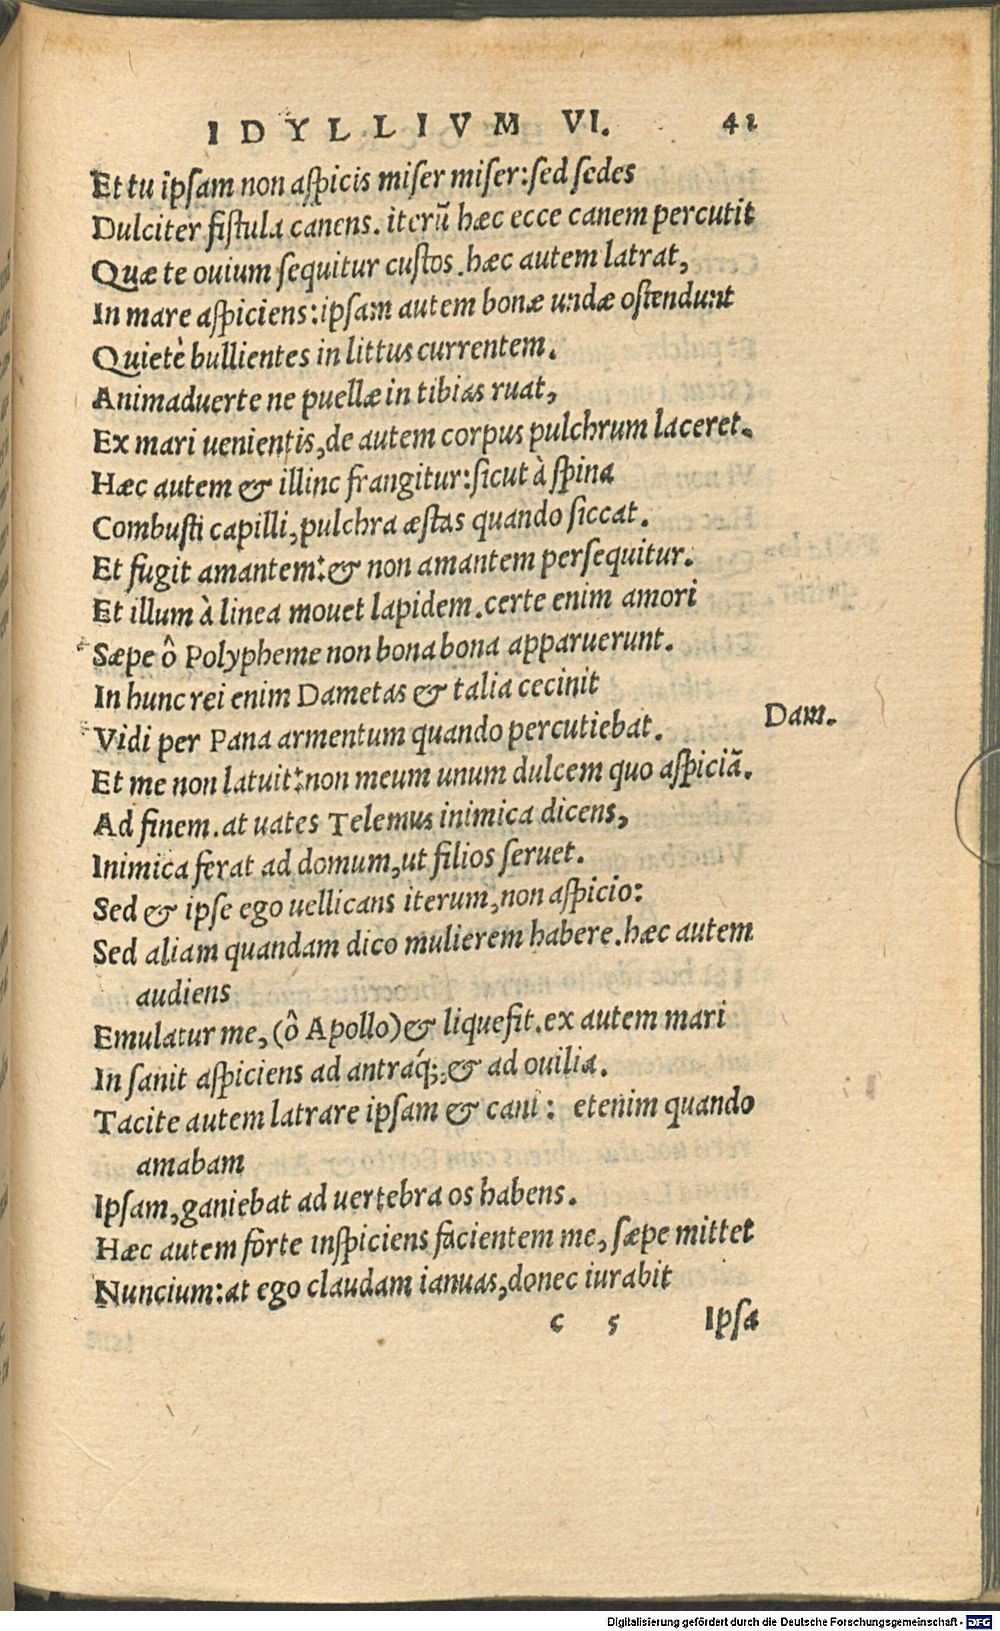 IDYLLIVM VI. 41
Et tu ipsam non aspicis miser miser: sed sedes
Dulciter fistula canens. iterũ hæc ecce canem percutit
Quæ te ouium sequitur custos. hæc autem latrat,
In mare aspiciens: ipsam autem bonæ undæ ostendunt
Quietè bullientes in littus currentem.
Animaduerte ne puellæ in tibias ruat,
Ex mari uenientis, de autem corpus pulchrum laceret.
Hæc autem & illinc frangitur: sicut à spina
Combusti capilli, pulchra æstas quando siccat.
Et fugit amantem: & non amantem persequitur.
Et illum à linea mouet lapidem. certe enim amori
Sæpe ô Polypheme non bona bona apparuerunt.
In hunc rei enim Dametas & talia cecinit
Vidi per Pana armentum quando percutiebat. Dam.
Et me non latuit: non meum unum dulcem quo aspiciã.
Ad finem. at uates Telemus inimica dicens,
Inimica ferat ad domum, ut filios seruet.
Sed & ipse ego uellicans iterum, non aspicio:
Sed aliam quandam dico mulierem habere. hæc autem
audiens
Emulatur me, (ô Apollo) & liquefit. ex autem mari
In sanit aspiciens ad antraq́; & ad ouilia.
Tacite autem latrare ipsam & cani: etenim quando
amabam
Ipsam, ganiebat ad uertebra os habens.
Hæc autem forte inspiciens facientem me, sæpe mittet
Nuncium: at ego claudam ianuas, donec iurabit
c 5 Ipsa
Digitalisierung gefördert durch die Deutsche Forschungsgemeinschaft - DFG